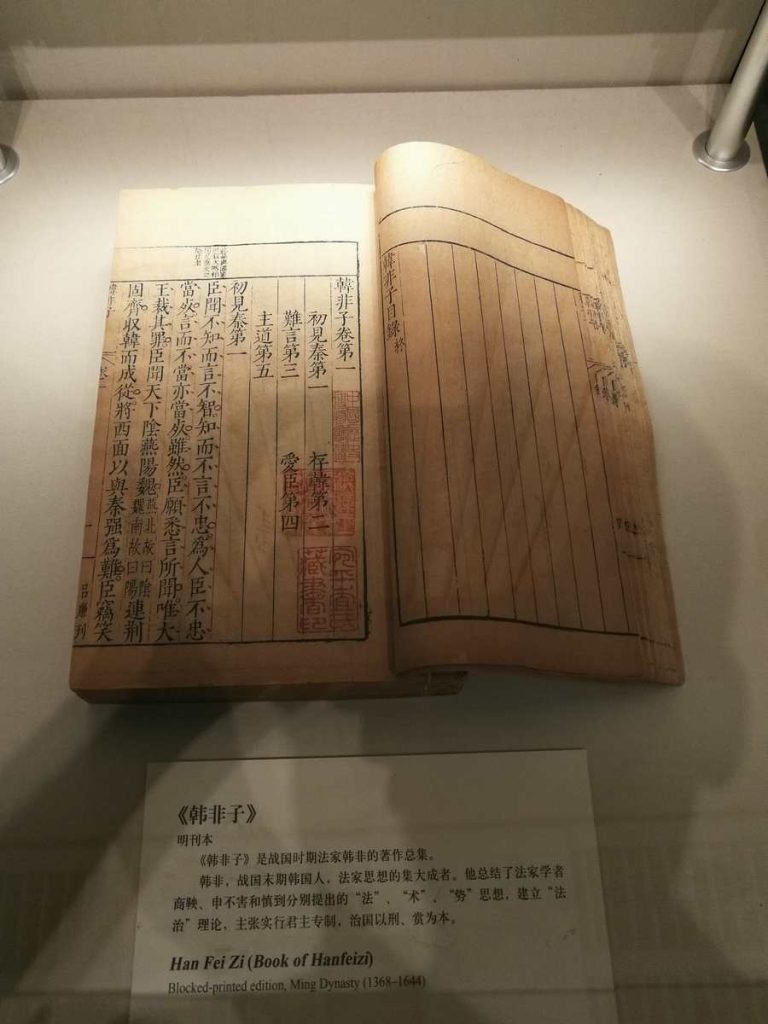 韓非子目錄終
韓非子卷第一
初見秦第一 存韓第二
難言第三 愛臣第四
主道第五
初見秦第一
臣聞不知而言不智知而不言不忠爲人臣不忠
當死言而不當亦當死雖然臣願悉言所聞唯大
王裁其罪臣聞天下陰燕陽魏燕北故曰陰魏南故曰陽連荆
固齊収韓而成從將西面以與秦强爲難臣竊笑
韓非子
《韩非子》
明刊本
《韩非子》是战国时期法家韩非的著作总集。
韩非，战国末期韩国人，法家思想的集大成者。他总结了法家学者
商鞅、申不害和慎到分别提出的“法”、“术”、“势”思想，建立“法
治”理论，主张实行君主专制，治国以刑、赏为本。
Han Fei Zi (Book of Hanfeizi)
Blocked-printed edition, Ming Dynasty (1368–1644)